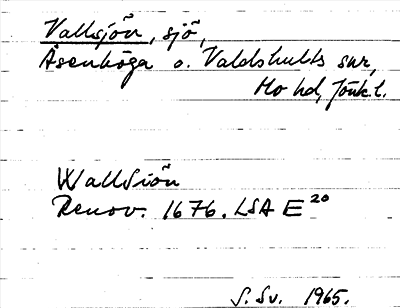 Vallsjön, sjö,
Åsenhöga o. Valdshults snr,
Mo hd, Jönk. l.
Wallsiön
Renov. 1676. LSA E 20
S. Sv. 1965.